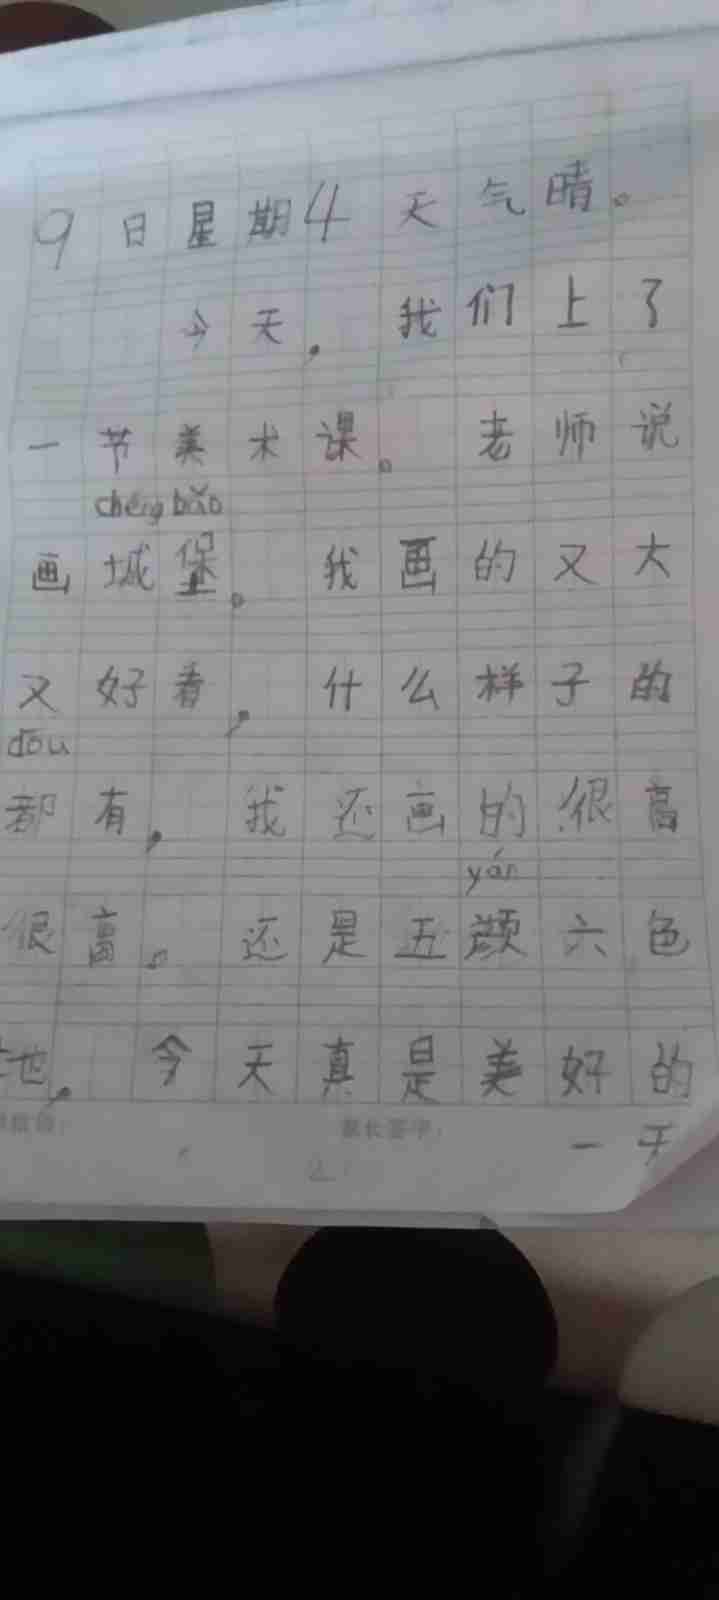 9日星期4天气晴。
今天,我们上了
一节美术课。老师说
chéng bǎo
画城堡。我画的又大
又好看,什么样子的
dōu
都有,我还画的很高
yán
很高。还是五颜六色
地,今天真是美好的
家长签字:
一天